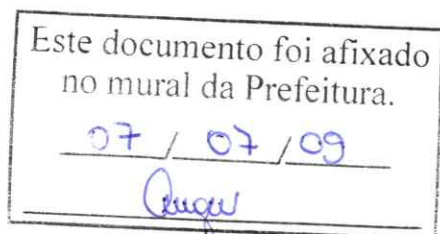 Este documento foi afixado
no mural da Prefeitura.
07 / 07 / 09